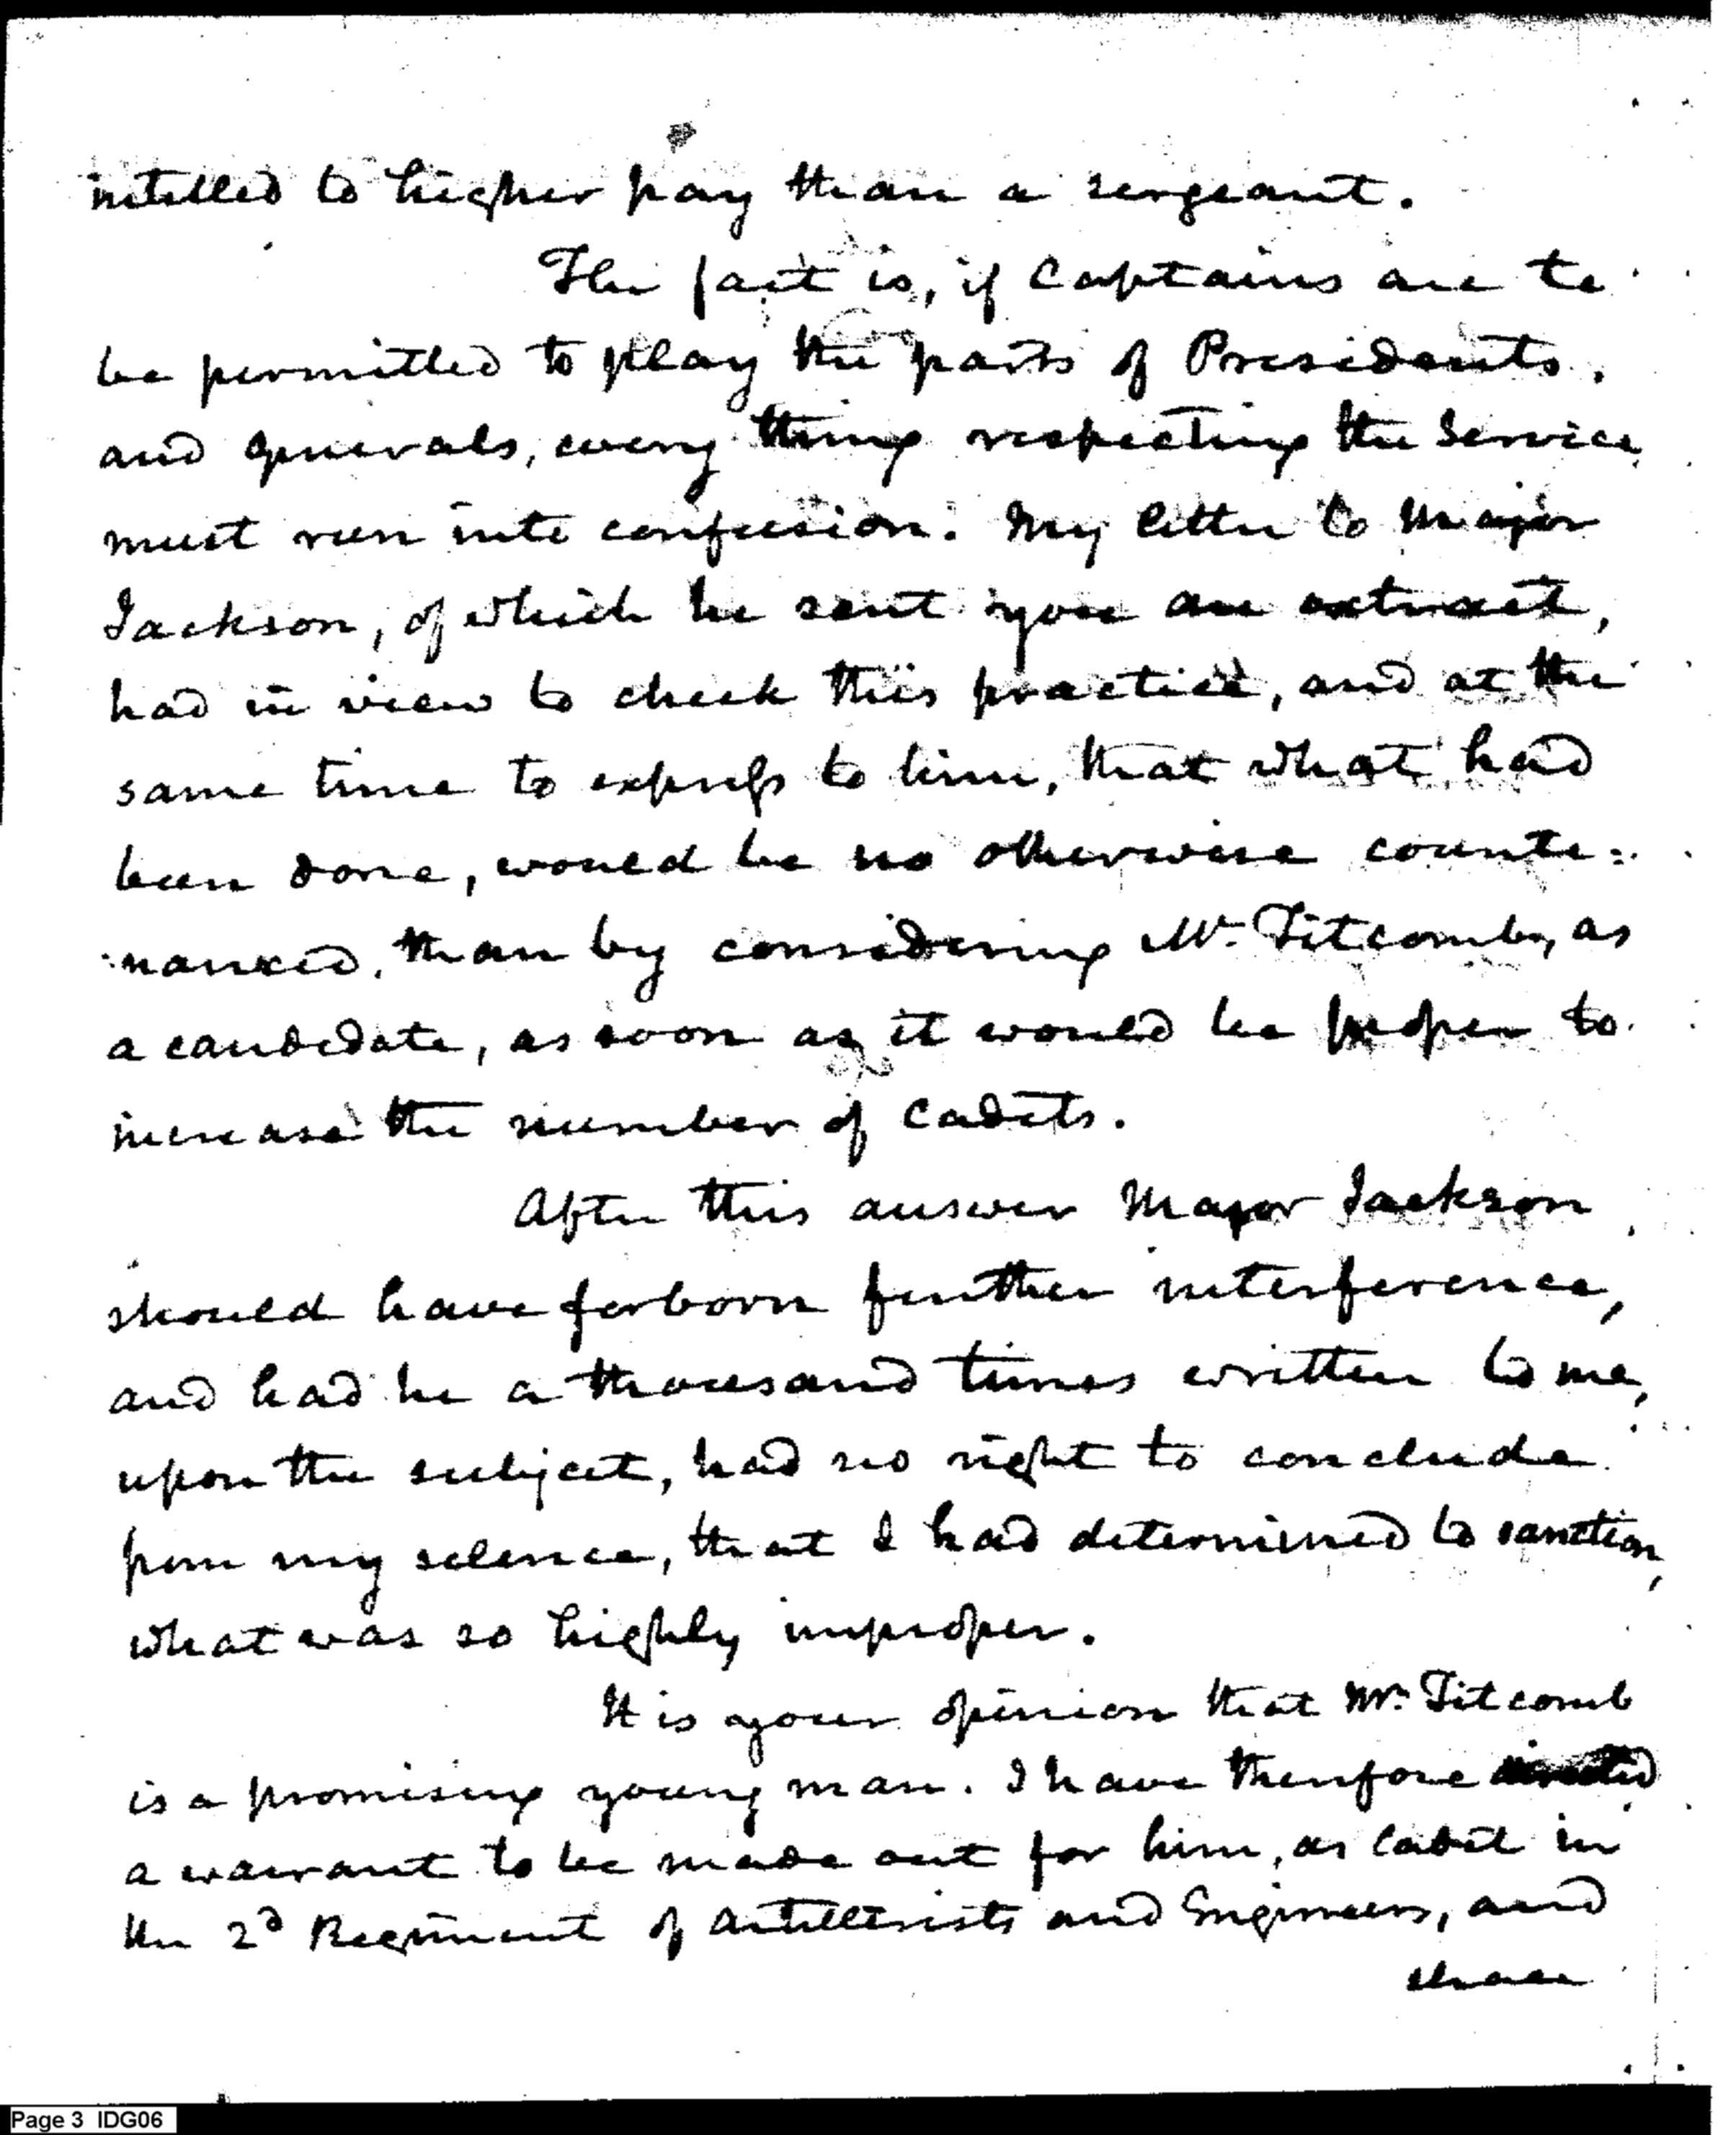 intitled to higher pay than a sergeant.
The fact is, if Captains are to
be permitted to play the parts of Presidents,
and generals, every thing respecting the Service
must run into confusion. My letter to Major
Jackson, of which he sent you an extract,
had in view to check this practice, and at the
same time to express to him, that what had
been done, would be no otherwise counte=
nanced, than by considering Mr. Titcomb, as
a candidate, as soon as it would be proper to
increase the number of Cadets.
After this answer Major Jackson
should have forborn further interference,
and had he a thousand times written to me,
upon the subject, had no right to conclude
from my silence, that I had determined to sanction,
what was so highly improper.
It is your opinion that Mr. Titcomb
is a promising young man. I have therefore directed
a warrant to be made out for him, as Cadet in
the 2d Regiment of Artillerists and Engineers, and
shall
Page 3 IDG06